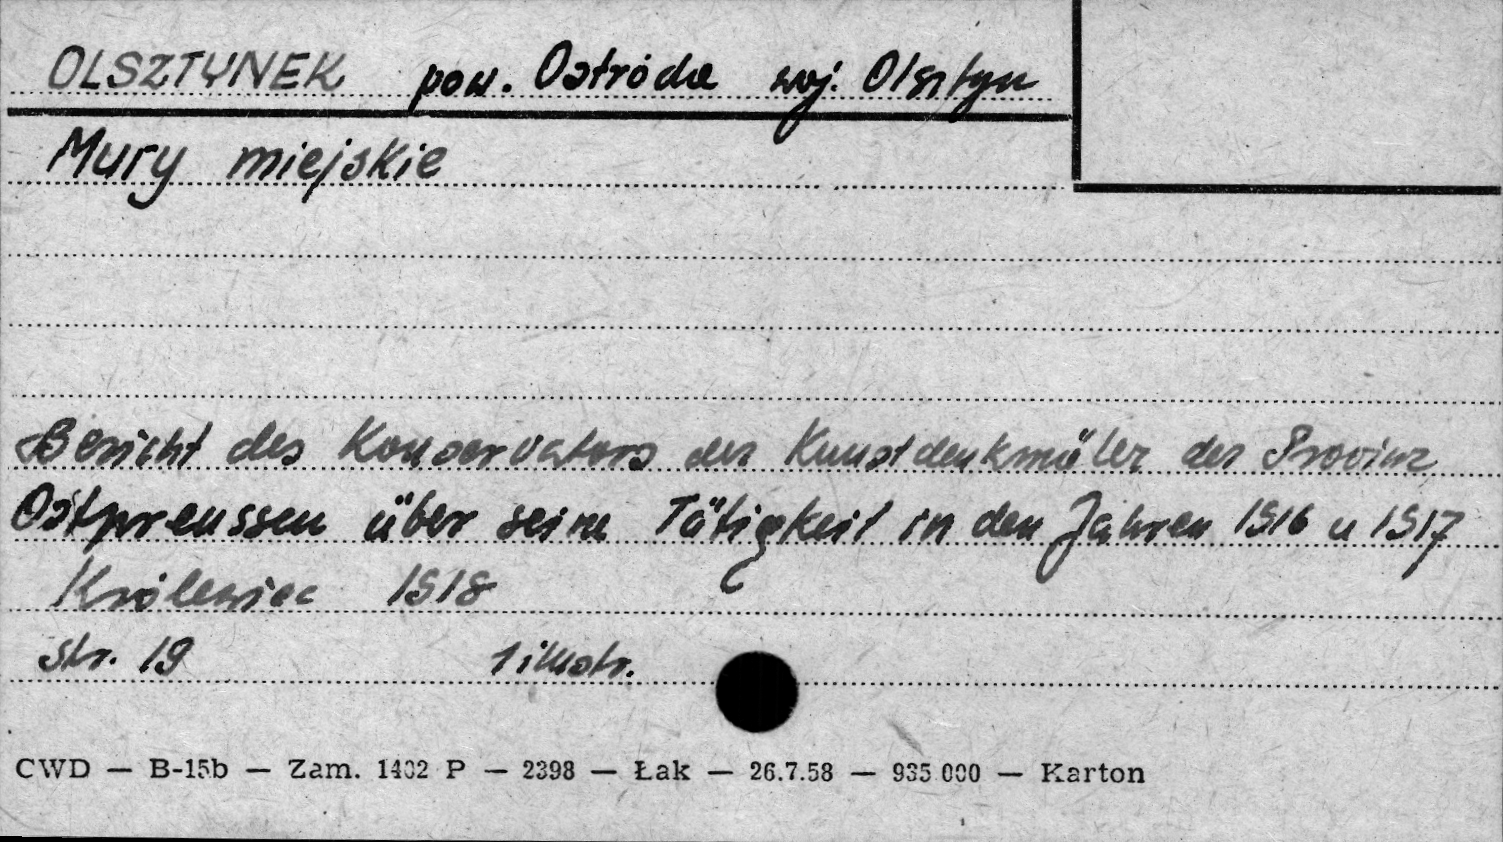 OLSZTYNEK pow. Ostróda woj. Olsztyn
Mury miejskie
Bericht des Konservators der Kunstdenkmäler der Provinz
Ostpreussen über seine Tätigkeit in den Jahren 1916 u 1917
Królewiec 1918
str. 19 1 ilustr.
CWD — B-15b — Zam. 1402 P — 2398 — Łak — 26.7.58 — 935 000 — Karton